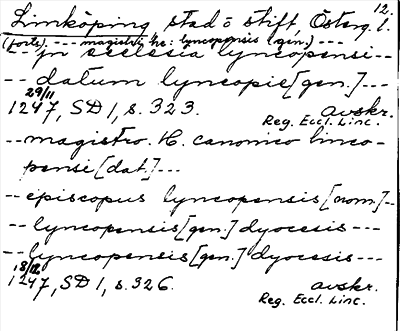 12.
Linköping stad o stift, Österg. l.
(forts). --- magistri he: lyncopensis (gen.) ---
-- jn ecclesia lyncopensi --
-- datum lyncopie [gen.] ---
29/11
1247, SD 1, s. 323. avskr.
Reg. Eccl. Linc.
-- magistro. H. canonico linco-
pensi [dat.] ---
-- episcopus lyncopensis [nom.] --
-- lyncopensis [gen.] dyocesis ---
-- lyncopensis [gen.] dyocesis ---
18/12
1247, SD 1, s. 326. avskr.
Reg. Eccl. Linc.